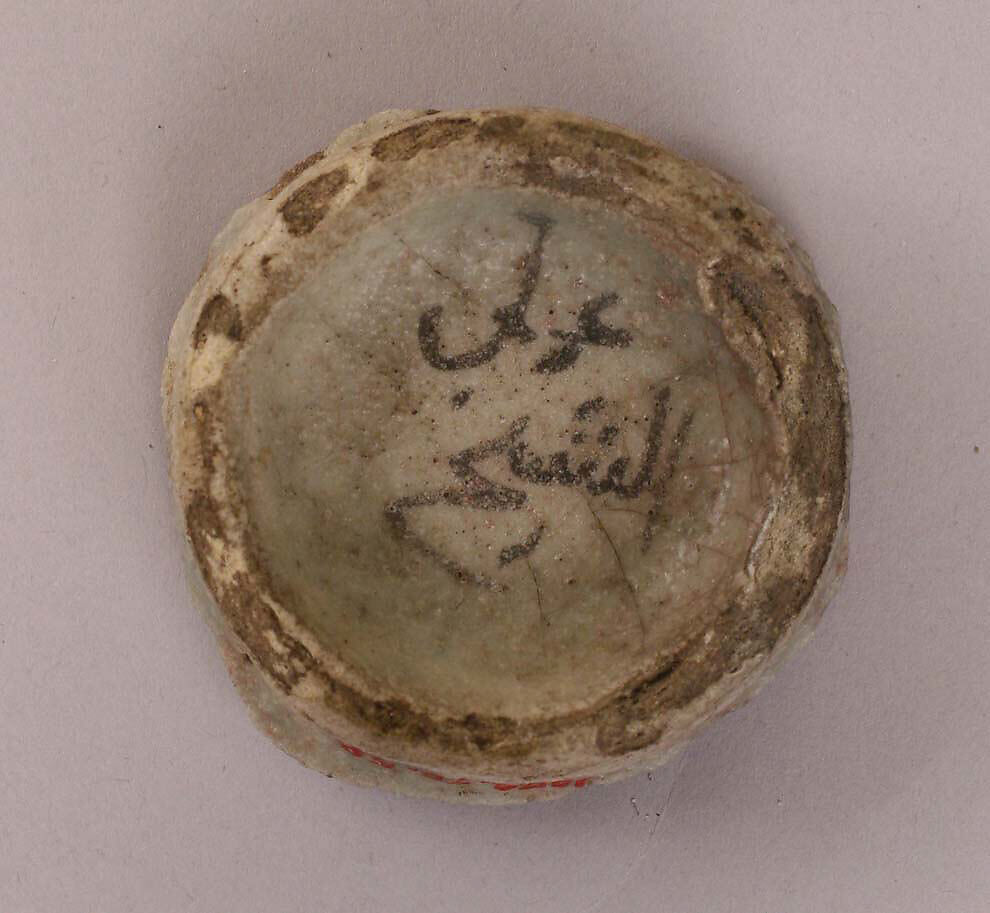 عمل
الشيخ